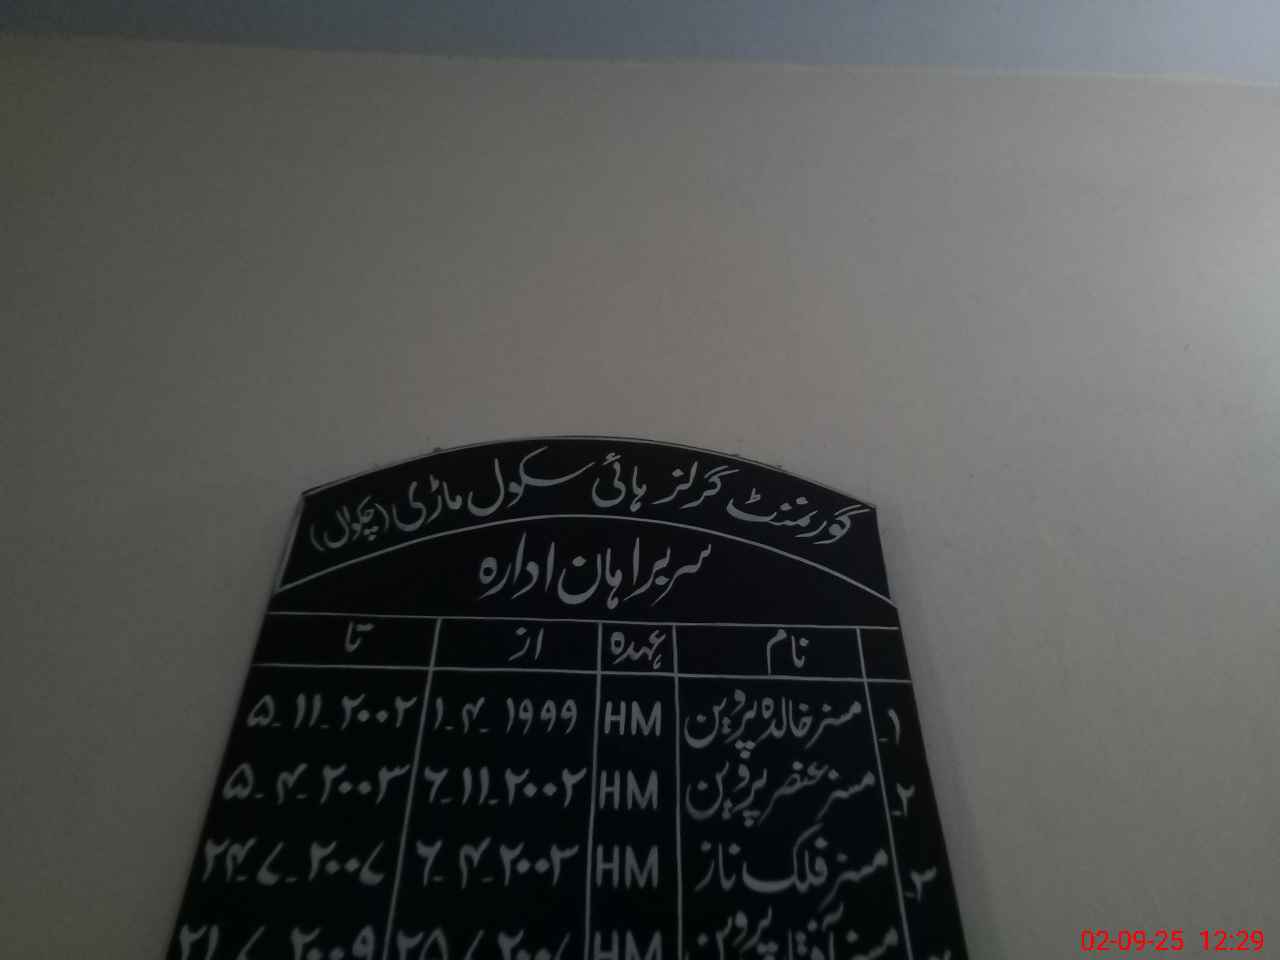 گورنمنٹ گرلز ہائی سکول ماڑی (چکوال)
سربراہان ادارہ
نام عہدہ از تا
۱۔ مسز خالدہ پروین HM ۱۔۴۔۱۹۹۹ ۵۔۱۱۔۲۰۰۲
۲۔ مسز عنصر پروین HM ۶۔۱۱۔۲۰۰۲ ۵۔۴۔۲۰۰۳
۳۔ مسز فلک ناز HM ۶۔۴۔۲۰۰۳ ۲۴۔۷۔۲۰۰۷
مسز آفتاب پروین HM ۲۵۔۷۔۲۰۰۷ ۲۱۔۷۔۲۰۰۹
02-09-25 12:29